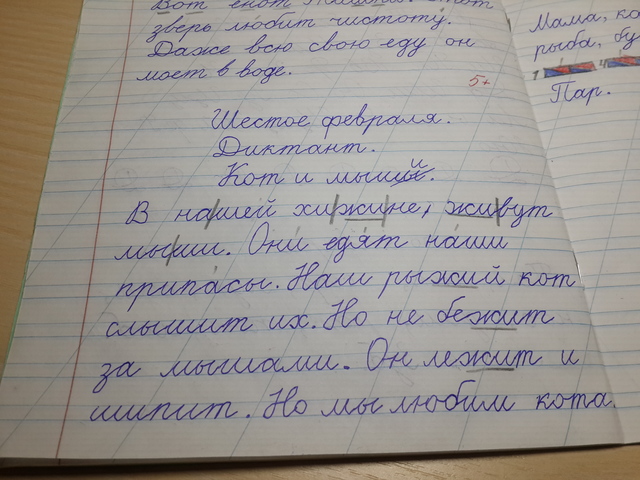 Вот енот
зверь любит чистоту.
Даже всю свою еду он
моет в воде.
5+
Шестое февраля.
Диктант.
Кот и мыши.
В нашей хижине, живут
мыши. Они едят наши
припасы. Наш рыжий кот
слышит их. Но не бежит
за мышами. Он лежит и
шипит. Но мы любим кота.
Мама, ко
рыба, бу
Пар.